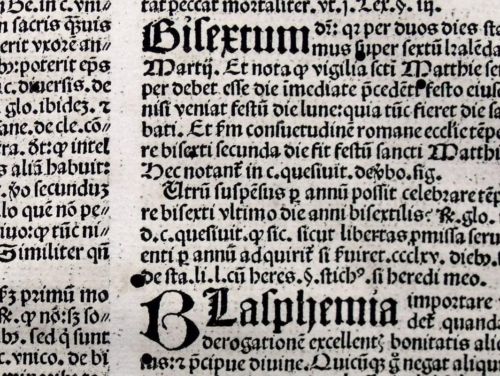 Be. in c. vni
in sacris quis
rit vxorē an
b. poterit eps
c. diuersis. de
glo. ibidez et
ane. de cle. cō
ra. dt: q intel
s aliā habuit:
secunduz
lo que nō pe
iuo: q tūc ni
Similiter qn
primū mo
q nō: sz so
b. sed q sunt
c. vnico. de bi
peccat mortaliter. vt. j. Lex. §. iij.
Bisextum dr: qr per duos dies sta
mus super sextū kaleda
Martij. Et nota q vigilia scti Matthie se
per debet esse die īmediate pcedēti festo eius
nisi veniat festū die lune: qua tūc fieret die sa
bati. Et fm consuetudinē romane ecclie tēpo
re bisexti secunda die fit festū sancti Matthi
Hec notant in c. quesiuit. de vbo. sig.
Utrū suspēsus p annū possit celebrare tēp
re bisexti vltimo die anni bisextilis: R. glo.
d. c. quesiuit. q sic. sicut libertas pmissa seru
enti p annū adquirit si fuiret. ccclxv. dieb.
de sta. li. l. cū heres. §. stich. si heredi meo.
Blasphemia importare
det quanda
derogationē excellenti bonitatis alic
ius: et pcipue diuine. Quicūq negat aliqui